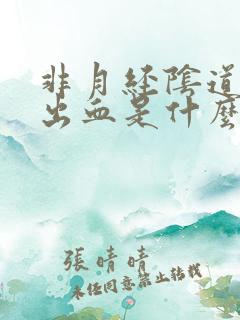 非月經陰道
出血是什麼
張晴晴
未經同意禁止轉載